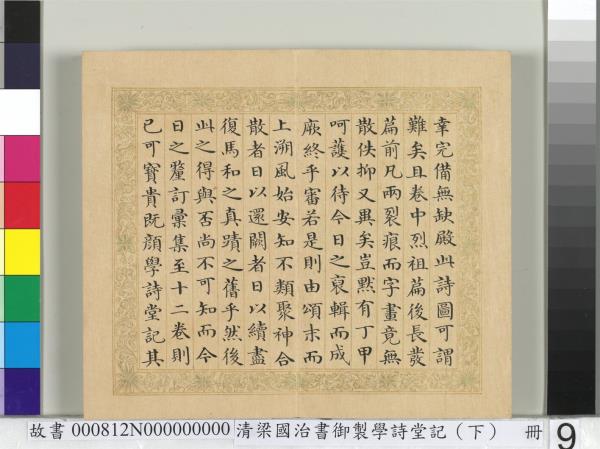 幸完備無缺殿此詩圖可謂
難矣且卷中烈祖篇後長發
篇前凡兩裂痕而字畫竟無
散佚抑又異矣豈黙有丁甲
呵護以待今日之裒輯而成
厥終乎審若是則由頌末而
上溯風始安知不類聚神合
散者日以還闕者日以續盡
復馬和之真蹟之舊乎然後
此之得與否尚不可知而今
日之釐訂彙集至十二卷則
已可寳貴既顏學詩堂記其
故書 000812N000000000 清梁國治書御製學詩堂記（下） 冊 9